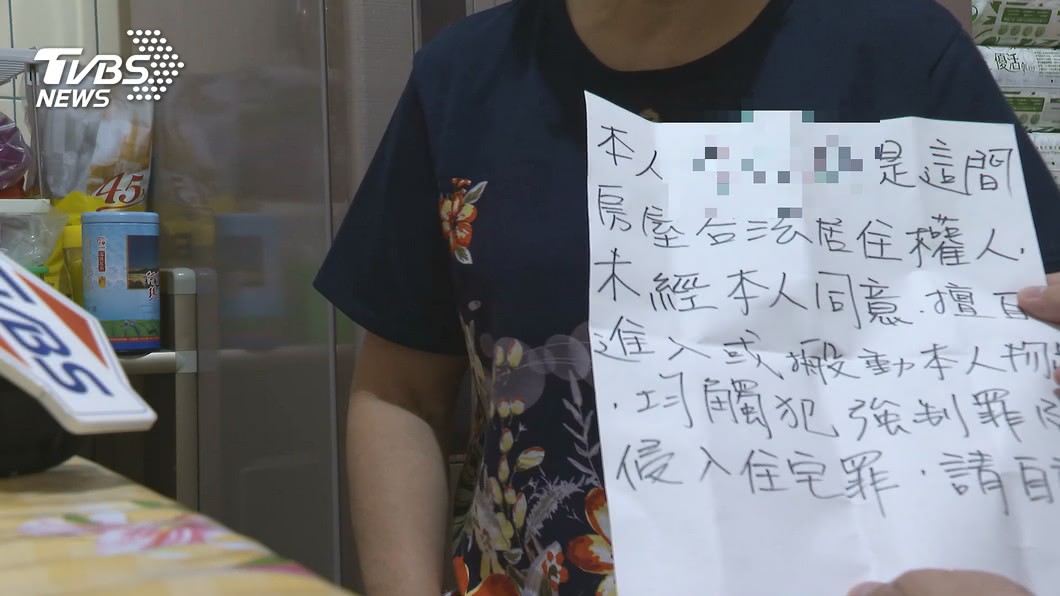 TVBS
NEWS
45
TVBS
優活
本人
是這間
房屋合法居住權人.
未經本人同意.擅自
進入或搬動本人物
.均觸犯強制罪
侵入住宅罪.請自